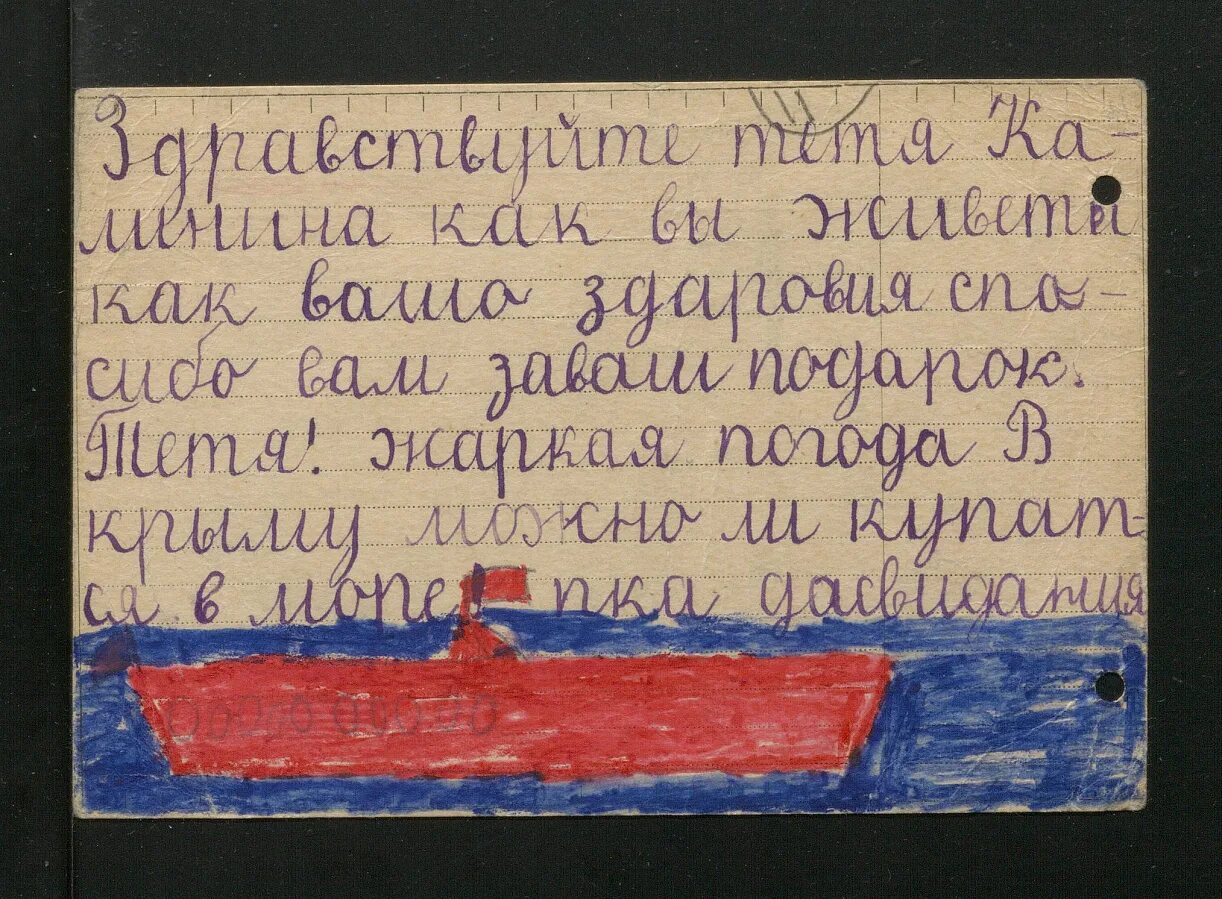 Здравствуйте тетя Ка-
линина как вы живети
как вашо здаровия спа-
сибо вам заваш подарок.
Тетя! жаркая погода В
крыму можно ли купат-
ся в море! пка дасвидания